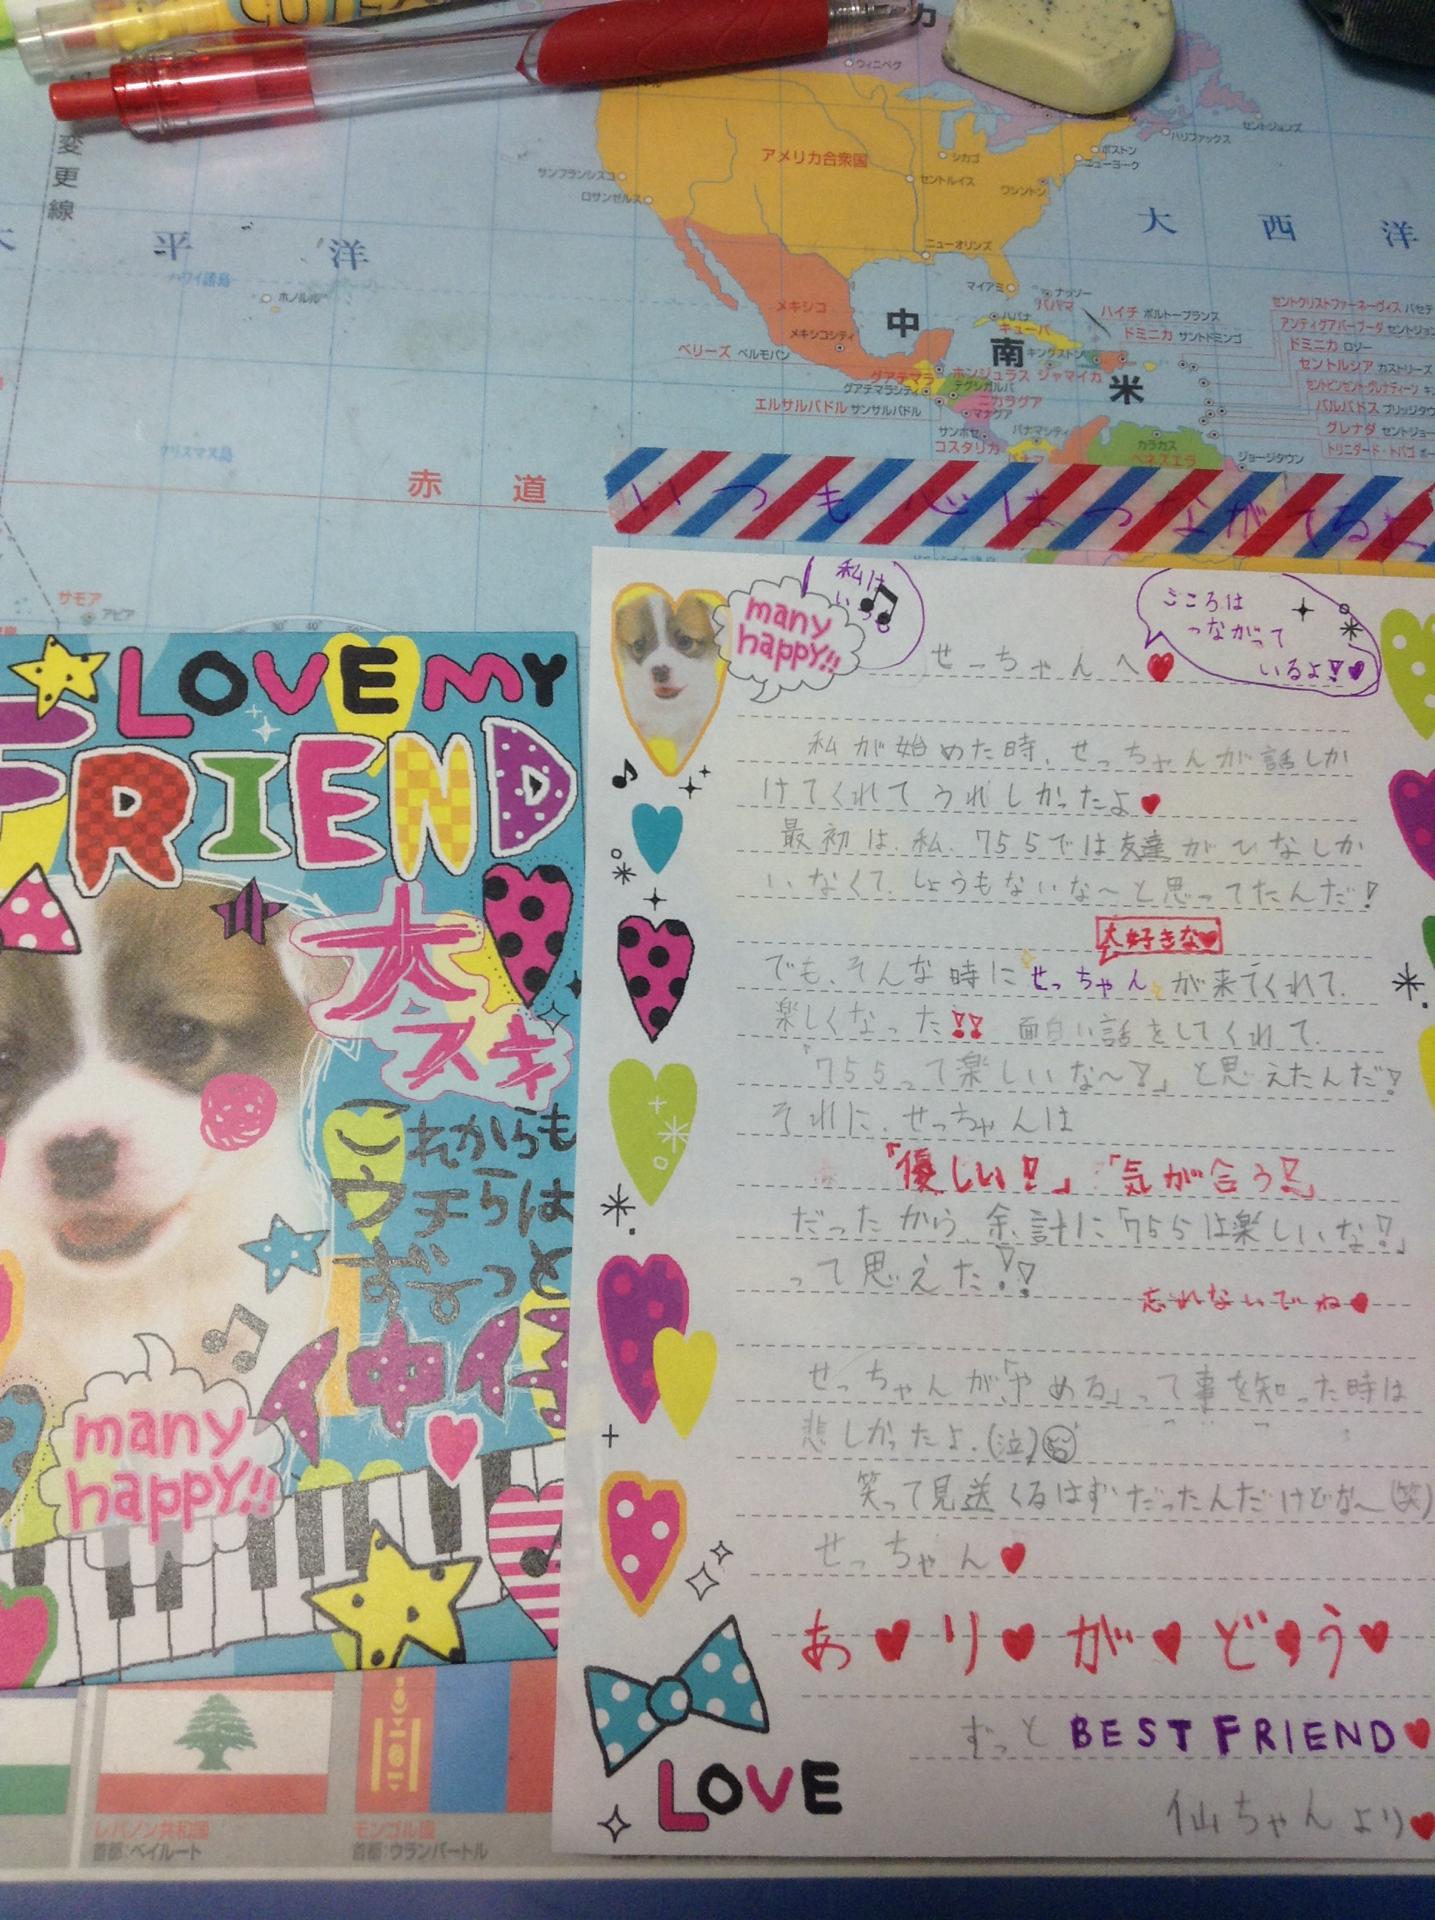 変更線
アメリカ合衆国
ウィニペグ
シカゴ
セントルイス
ボストン
ニューヨーク
ワシントン
ハリファックス
セントジョンズ
サンフランシスコ
ロサンゼルス
ニューオリンズ
マイアミ
ナッソー
ハバナ
キューバ
平洋
大西洋
ハワイ諸島
ホノルル
メキシコ
メキシコシティ
中南米
ハイチ ポルトープランス
ドミニカ サントドミンゴ
キングストン
ジャマイカ
ベリーズ ベルモパン
グアテマラ
グアテマラシティ
ホンジュラス
テグシガルパ
ニカラグア
マナグア
エルサルバドル サンサルバドル
サンホセ
コスタリカ
パナマシティ
カラカス
ベネズエラ
ジョージタウン
ドミニカ ロゾー
セントルシア カストリーズ
グレナダ
クリスマス島
赤道
サモア
アピア
いつも心はつながてる
LOVE MY
FRIEND
大スキ
これからも
ウチらは
ず〜っと
仲
many
happy!!
many
happy!!
私は
い
こころは
つながって
いるよ!♥
せっちゃんへ♥
私が始めた時、せっちゃんが話しか
けてくれてうれしかったよ♥
最初は、私、755では友達が
いなくて、しょうもないな〜と思ってたんだ!
大好きな♥
でも、そんな時にせっちゃんが来てくれて、
楽しくなった!! 面白い話をしてくれて、
「755って楽しいな〜!」と思えたんだ!
それに、せっちゃんは
「優しい!」「気が合う!」
だったから、余計に「755は楽しいな!」
って思えた!!
忘れないでね♥
せっちゃんが、「やめる」って事を知った時は
悲しかったよ.(泣)
笑って見送くるはずだったんだけどな〜(笑)
せっちゃん♥
あ♥り♥が♥と♥う♥
ずっと BEST FRIEND♥
仙ちゃんより♥
LOVE
レバノン共和国
首都:ベイルート
モンゴル国
首都:ウランバートル